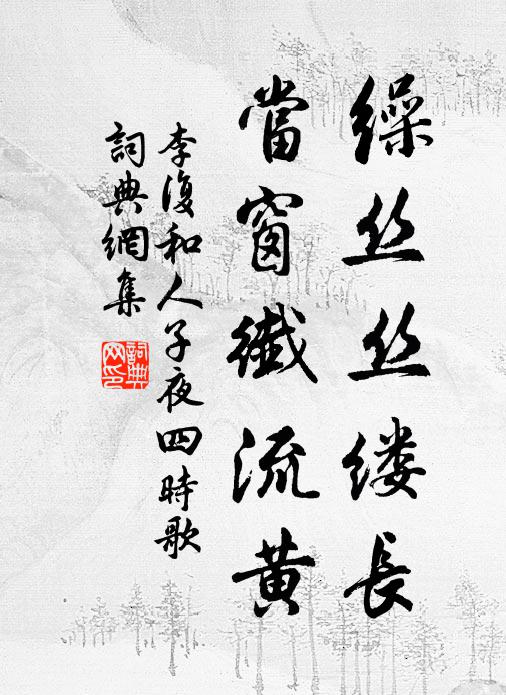 缲丝丝缕長
當窗纖流黄
李復和人子夜四時歌
詞典網集
詞典网印